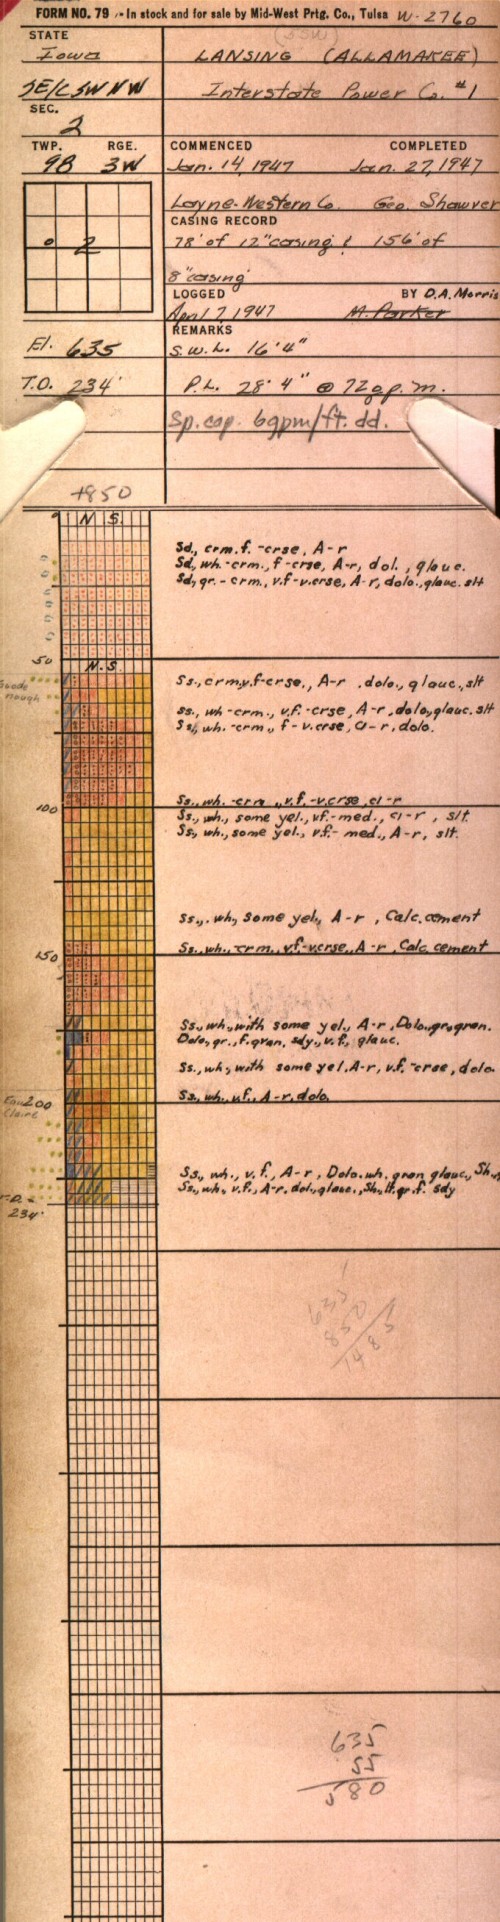 FORM NO. 79 - In stock and for sale by Mid-West Prtg. Co., Tulsa W-2760
(SSW)
STATE
Iowa LANSING (ALLAMAKEE)
SE/C SW NW Interstate Power Co. #1
SEC.
2
TWP. RGE. COMMENCED COMPLETED
98 3W Jan. 14, 1947 Jan. 27, 1947
Layne-Western Co. Geo. Shawver
CASING RECORD
2 78' of 12" casing & 156' of
8" casing
LOGGED BY D.A. Morris
April 7, 1947 M. Parker
REMARKS
El. 635 S.W.L. 16'4"
T.D. 234' P.L. 28' 4" @ 72 g.p.m.
Sp. cap. 6gpm/ft. dd.
+850
0 N.S.
Sd., crm. f. -crse, A-r
Sd., wh.-crm., f-crse, A-r, dol., glauc.
Sd., gr.-crm., v.f-v.crse, A-r, dolo., glauc. slt
50 N.S
Ss., crm. v.f-crse., A-r, dolo., glauc., slt
ss., wh-crm., v.f.-crse, A-r, dolo., glauc. slt
Ss., wh.-crm., f-v.crse, a-r, dolo.
100 Ss., wh.-crm., v.f.-v.crse, a-r
Ss., wh., some yel., vf.-med., a-r, slt.
Ss., wh., some yel., v.f.-med., A-r, slt.
Ss., wh., some yel., A-r, Calc. cement
150 Ss., wh.-crm., v.f.-v.crse., A-r, Calc. cement
Ss., wh., with some yel., A-r, Dolo., gr. gran.
Dolo., gr., f. gran, sdy., v.f., glauc.
Ss., wh., with some yel, A-r, v.f.-crse, dolo.
Eau 200 Ss., wh., v.f., A-r, dolo.
Claire
Ss., wh., v.f., A-r, Dolo. wh. gran glauc., Sh.,
T.D. = Ss., wh., v.f., A-r. dol., glauc., Sh., lt. gr. f. sdy
234'
635
850
1485
635
55
580